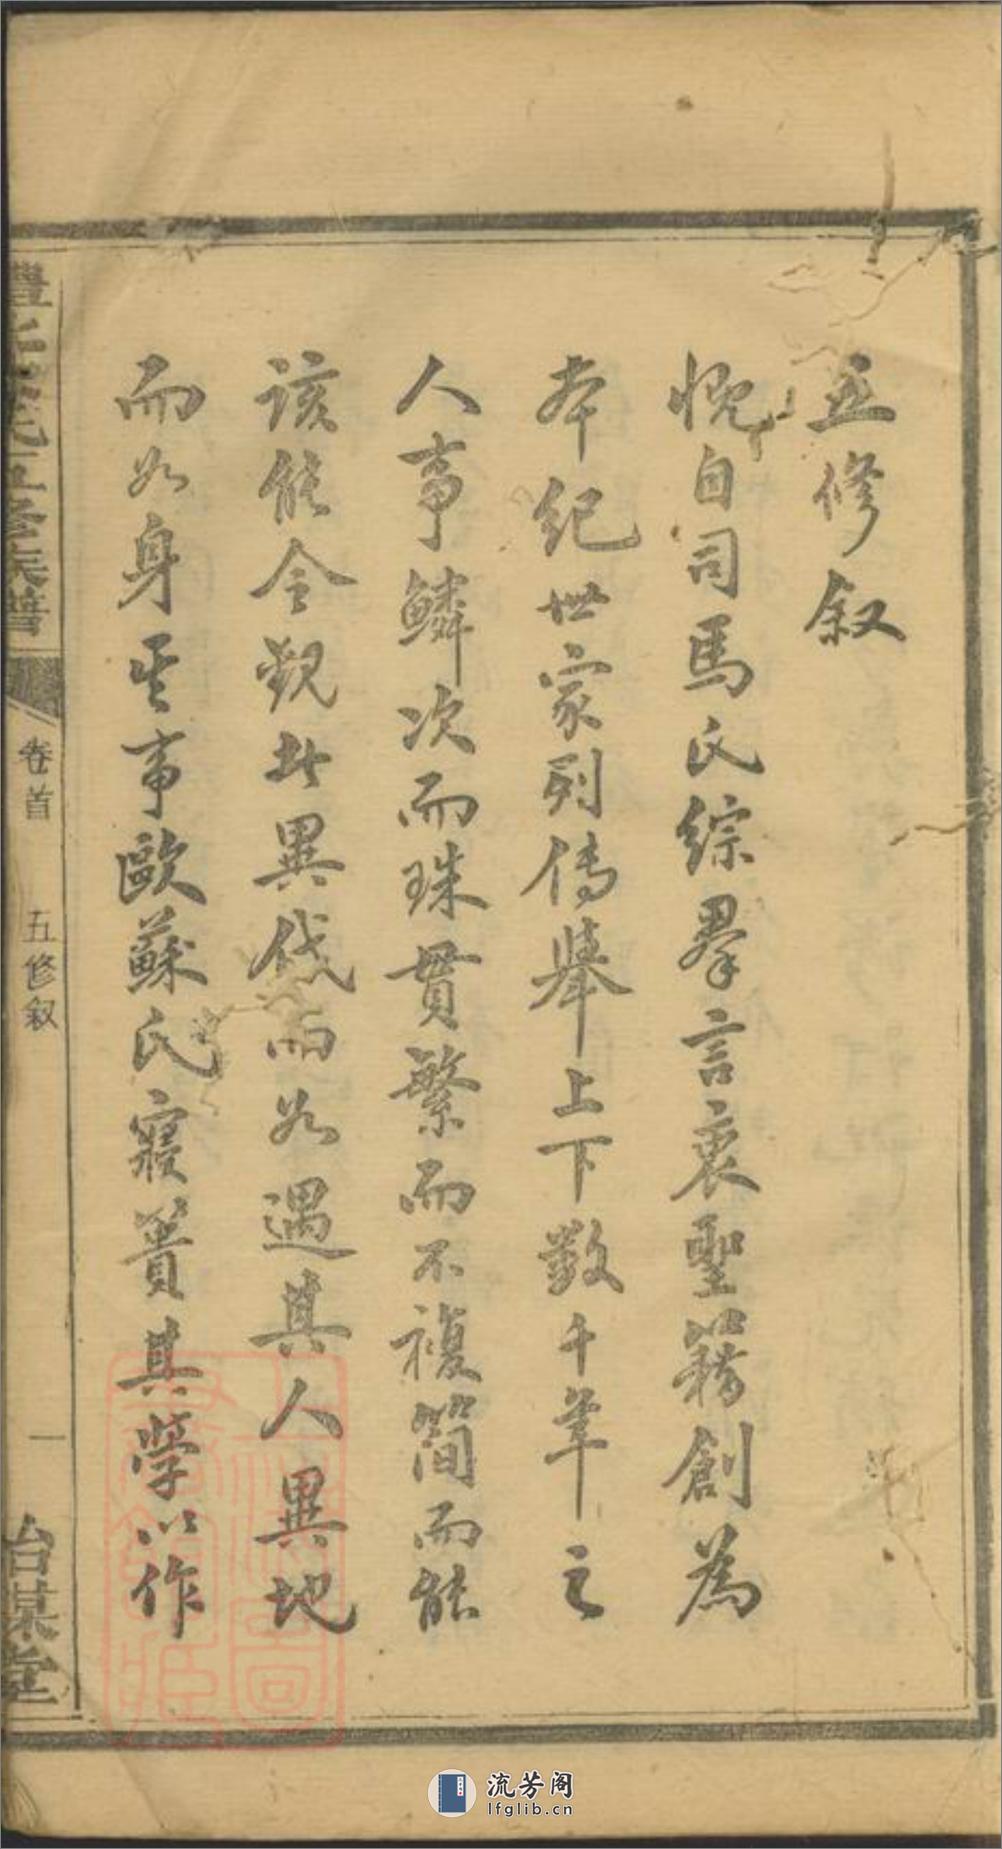 五修叙
慨自司馬氏綜羣言裒聖籍創為
本紀世家列傳舉上下數千年之
人事鱗次而珠貫繁而不複簡而能
該能令觀者異代而如遇其人異地
而如身其事歐蘇氏寢饋其學以作
氏五修族譜
卷首
五修叙
一
詒謀堂
流芳阁
lfglib.cn